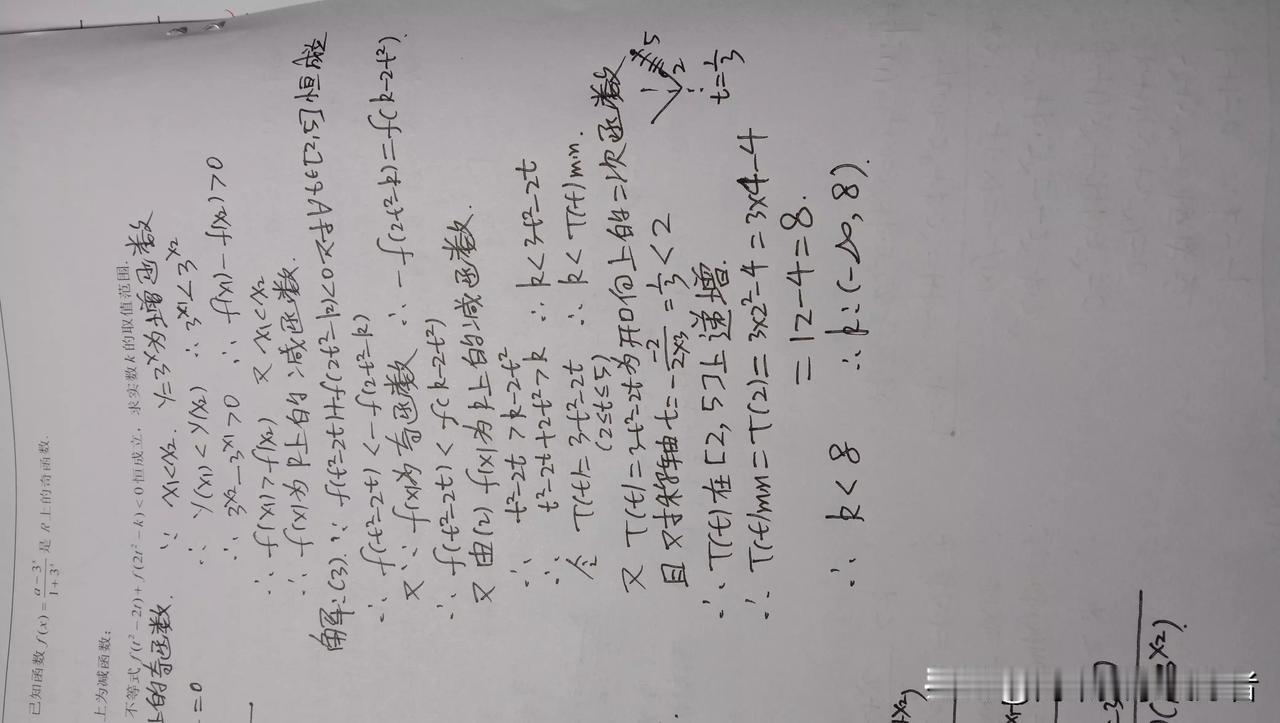 已知函数 f(x) = (a-3^x)/(1+3^x) 是 R 上的奇函数.
上为减函数;
不等式 f(t²-2t)+f(2t²-k)<0 恒成立, 求实数 k 的取值范围.
上的奇函数.
=0
∵ x1<x2. y=3^x为增函数
∴ y(x1)<y(x2) ∴ 3^x1<3^x2
∴ 3^x2-3^x1>0 ∴ f(x1)-f(x2)>0
∴ f(x1)>f(x2) 又 x1<x2
∴ f(x)为R上的减函数.
解:(3).∵ f(t²-2t)+f(2t²-k)<0对∀t∈[2,5]恒成立
∴ f(t²-2t)<-f(2t²-k)
又∵ f(x)为奇函数 ∴ -f(2t²-k)=f(k-2t²).
∴ f(t²-2t)<f(k-2t²)
又由(2) f(x)为R上的减函数.
∴ t²-2t>k-2t²
∴ t²-2t+2t²>k ∴ k<3t²-2t
令 T(t)=3t²-2t ∴ k<T(t)min.
(2≤t≤5)
又 T(t)=3t²-2t为开口向上的二次函数
且对称轴t=-(-2)/(2×3)=1/3<2
5
2
t=1/3
∴ T(t)在[2,5]上递增.
∴ T(t)min=T(2)=3×2²-4=3×4-4
=12-4=8.
∴ k<8 ∴ k:(-∞,8).
x2)